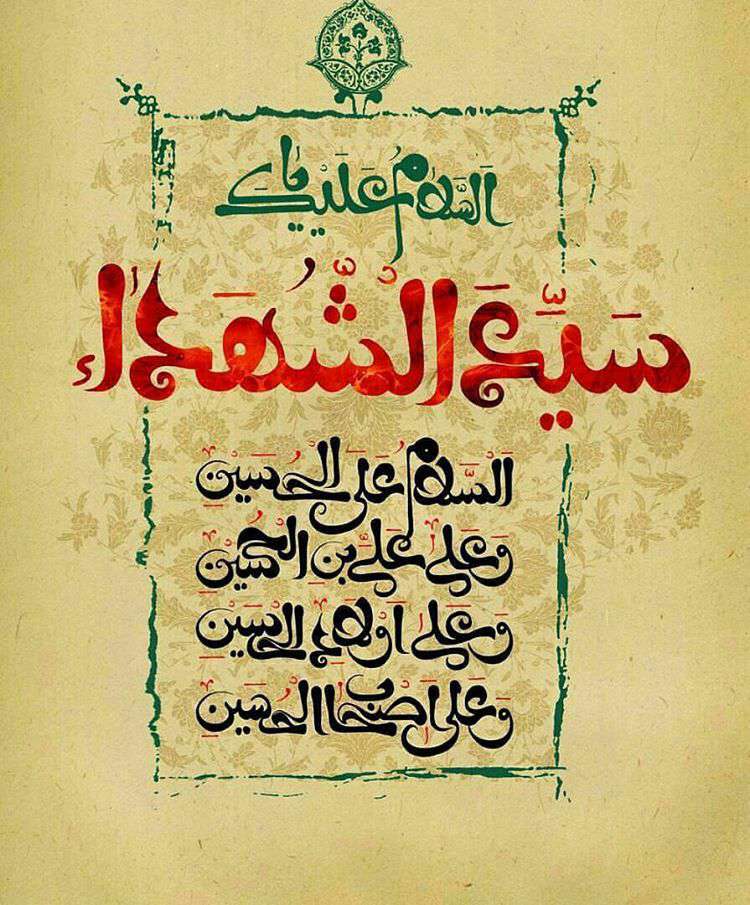 اَلسَّلامُ عَلَيْكَ يا
سَيِّدَ الشُّهَداءِ
اَلسَّلامُ عَلَى الْحُسَيْنِ
وَعَلى عَلِيِّ بْنِ الْحُسَيْنِ
وَعَلى اَوْلادِ الْحُسَيْنِ
وَعَلى اَصْحابِ الْحُسَيْنِ